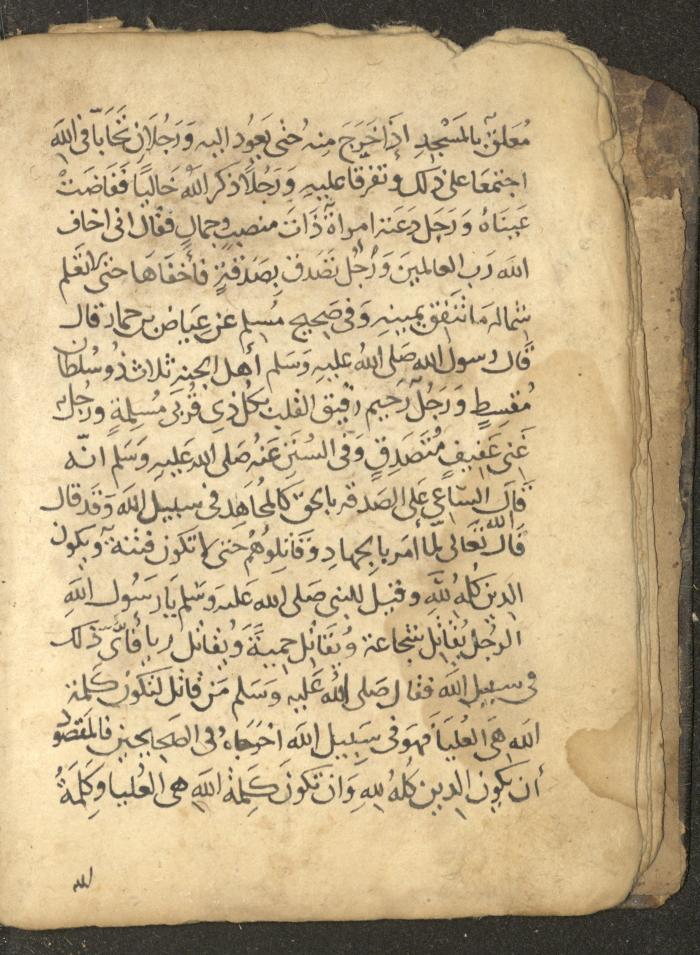 مُعَلقٌ بالمَسْجِدِ اِذَا خَرَجَ مِنهُ حَتى يَعُود اليهِ وَرَجُلَانِ تَحَابّا فى اللهِ
اجتمَعَا على ذلك وتفرقا عليهِ وَرَجُلًا ذكر اللهَ خَاليًا فَفَاضَتْ
عَينَاهُ وَرَجل دعَته امراةٌ ذَاتَ منصبٍ وجمالٍ فقال انى اخاف
الله رَب العالمينَ وَرَجُل تصَدق بِصَدَقةٍ فأخفَاهَا حتى لا تعلم
شماله مَا تنفِق يمينِهِ وَفى صَحِيح مُسلِم عن عِيَاض بن حمار قال
قَال رسول الله صَلى اللهُ عليهِ وَسَلم أهل الجنهِ ثلاث ذُو سُلطَان
مُقسِطٍ وَرَجُلٌ رَحِيم رقِيق القَلب بكُل ذِى قُربَى مُسلِمَةٍ ورَجُل
غَنى عَفِيفٍ مُتصَدِقٍ وَفى السُنَنِ عَنهُ صَلى الله عَليهِ وَسَلم انّه
قَالَ السّاعى عَلى الصَدقه بالحق كالمجاهِدِ فى سبيل الله وَقد قال
قالَ اللهُ تَعَالى لمّا أمَر بالجهادِ وَقَاتِلوُهُم حَتى لا تكون فتنة ويَكون
الدين كُله للهِ وقيل للنبى صَلى الله عَليه وَسَلم يَا رَسُول اللهِ
الرجُل يُقاتِل شجَاعة وَيقَاتل حَمِيَّةً وَيُقاتل ريا فأىّ ذلك
فى سبيل الله فقال صَلى اللهُ عَليهِ وَسَلم مَن قاتل لتَكُونَ كلمة
اللهِ هِىَ العُليَا فهوَ فى سَبِيل الله اخرجَاهُ فى الصَحِيحَينِ فالمَقصُود
أن يكون الدين كُلهُ للهِ وَان تكونَ كَلِمَة اللهِ هِى العُليا وكَلِمَةُ
لله